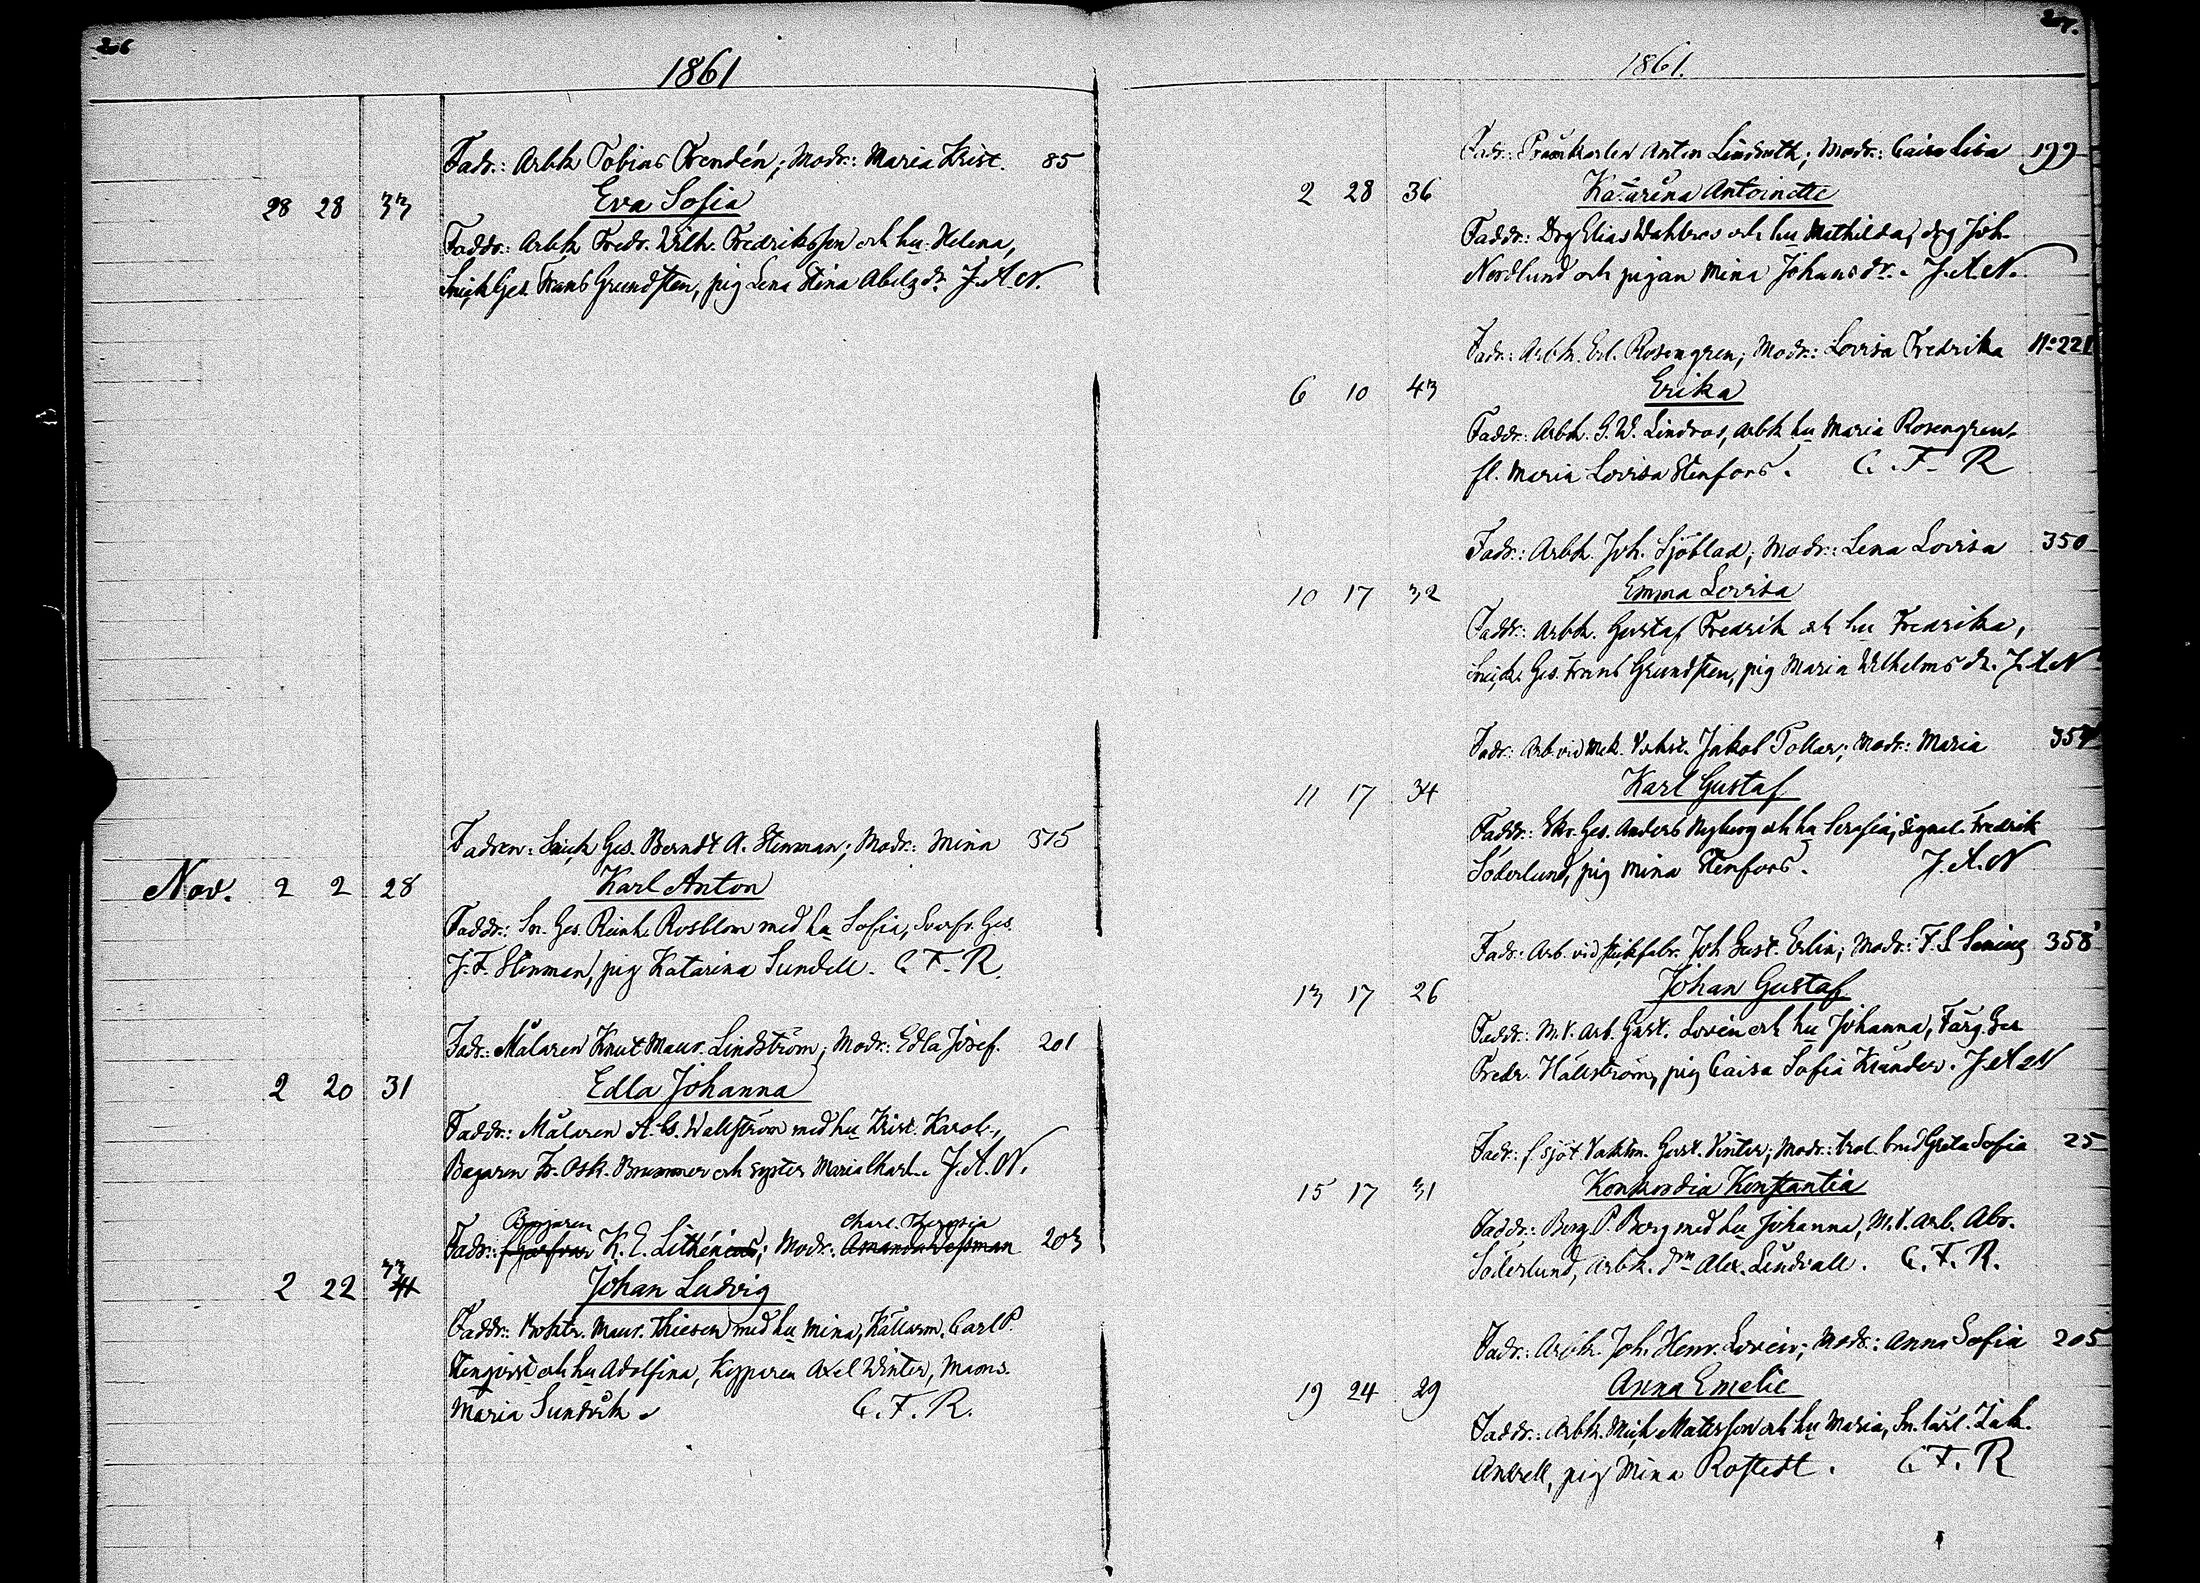 206
1861
Fadr.: Arbk Tobias Trendén; Modr.: Maria Krist. 85
28 28 33 Eva Sofia
Faddr.: Arbk Fredr. Wilh. Fredriksson och hu Helena,
Snick Ges. Frans Grundsten, pig Lena Stina Abelsdr. J. A. N.
Fadren: Snick Ges. Berndt A. Stenman; Modr.: Mina 375
Nov. 2 2 28 Karl Anton
Faddr.: Sn. Ges. Reinh. Rosblom med hu Sofia, Svarfv. Ges.
J. F. Stenman, pig Katarina Sundell. C. F. R.
Fadr.: Målaren Knut Maur. Lindström; Modr.: Edla Josef. 201
2 20 31 Edla Johanna
Faddr.: Målaren A. G. Wallström med hu Krist. Karol.,
Bagaren Fr. Osk. Brummer och syster Maria Charl. J. A. N.
Bagaren Charl. Theresia
Fadr.: K. E. Lithénius; Modr.: Amanda Wessman 203
33
2 22 Johan Ludvig
Faddr.: Bokh. Maur. Thiesen med hu Mina, Källarm. Carl P.
och hu Adolfina, Kypparen Axel Winter, Mams.
Maria Sundvik. C. F. R.
207.
1861.
Fadr.: Anton Lindroth; Modr.: Caisa Lisa 199
2 28 36 Katarina Antoinette
Faddr.: Drg Elias Wahlroos och hu Mathilda, drg Joh.
Nordlund och pigan Mina Johansdr. J. A. N.
Fadr.: Arbk. Erl. Rosengren; Modr.: Lovisa Fredrika No 221
6 10 43 Erika
Faddr.: Arbk. G. W. Lindroos, arbk hu Maria Rosengren,
fl. Maria Lovisa Stenfors. C. F. R
Fadr.: Arbk. Joh. Sjöblad; Modr.: Lena Lovisa 350
10 17 32 Emma Lovisa
Faddr.: Arbk. Gustaf Fredrik och hu Fredrika,
Snick. Ges. Frans Grundsten, pig Maria Wilhelmsdr. J. A. N
Fadr.: Arb. vid Mek. Verkst. Jakob Pollar; Modr.: Maria
11 17 34 Karl Gustaf
Faddr.: Skr. Ges. Anders Nyberg och hu Serafia, Signal. Fredrik
Söderlund, pig Mina Stenfors. J. A. N
Fadr.: Arb. vid Joh Gust. Erlin; Modr.: F. S. 358
13 17 26 Johan Gustaf
Faddr.: M. V. Arb. Gust. Lovén och hu Johanna, Färg. Ges
Fredr. Hällström, pig Caisa Sofia Krander. J. A. N
Fadr.: f. sjöt. Vaktm. Gust. Vinter; Modr.: trol. brud Greta Sofia 25
15 17 31 Konkordia Konstantia
Faddr.: Borg. P. Berg med hu Johanna, M. V. Arb. Abr.
Söderlund, arbk. Alex. Lindvall. C. F. R.
Fadr.: Arbk. Joh. Henr. Lovén; Modr.: Anna Sofia 205
19 24 29 Anna Emelie
Faddr.: Arbk. Mich Mattsson och hu Maria, Sn. lärl. Zak.
Andell, pig Mina Rostedt. C. F. R